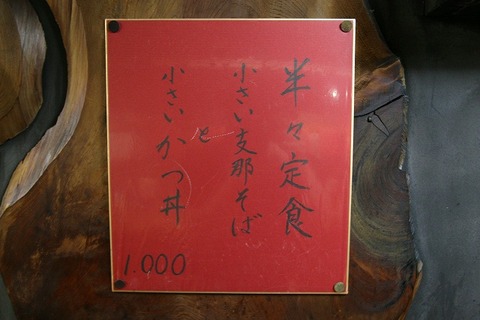 半々定食
小さい支那そば
と
小さいかつ丼
1.000